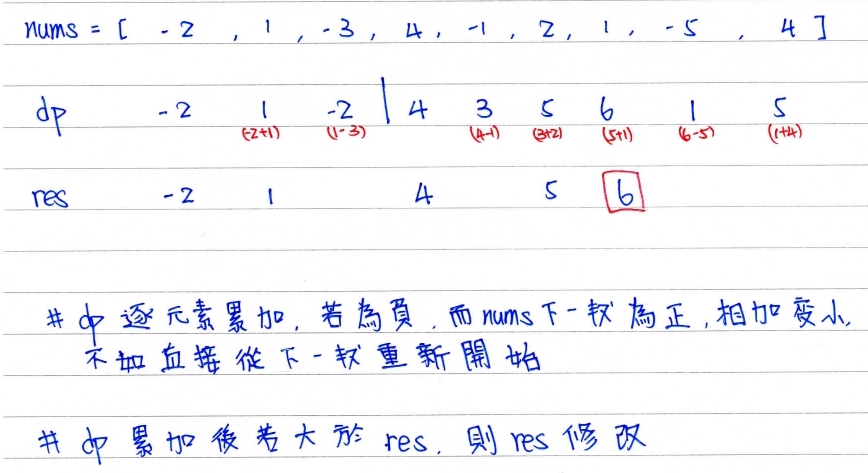 nums = [ -2 , 1 , -3 , 4 , -1 , 2 , 1 , -5 , 4 ]
dp -2 1 -2 | 4 3 5 6 1 5
(-2+1) (1-3) (4-1) (3+2) (5+1) (6-5) (1+4)
res -2 1 4 5 6
# dp 逐元素累加, 若為負, 而 nums 下一數為正, 相加變小,
不如直接從下一數重新開始
# dp 累加後若大於 res, 則 res 修改